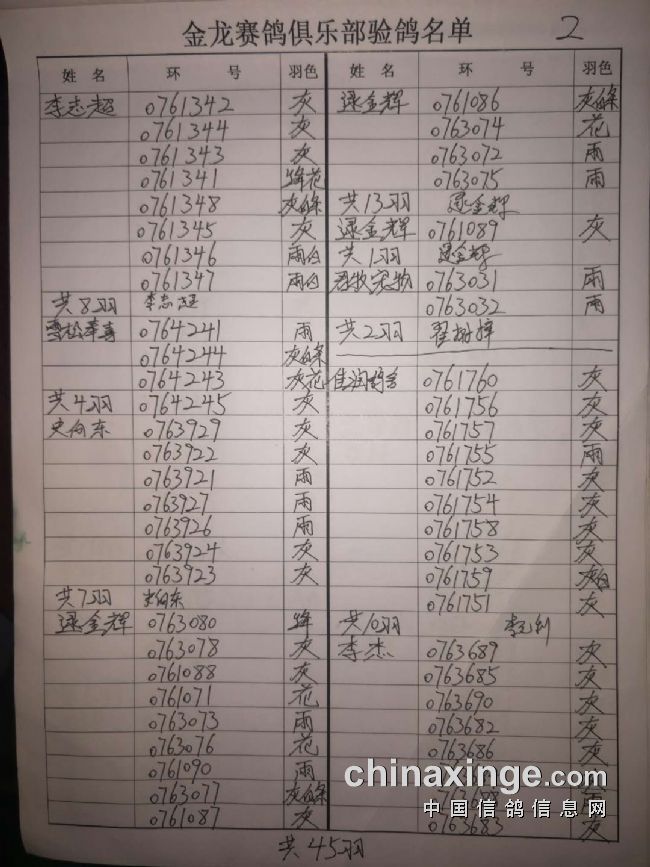 金龙赛鸽俱乐部验鸽名单 2
姓 名 环 号 羽色
李志超 0761342 灰
0761344 灰
0761343 灰
0761341 绛花
0761348 灰白条
0761345 灰
0761346 雨白
0761347 雨白
共8羽 李志超
0764241 雨
0764244 灰白条
0764243 灰花
共4羽 0764245 灰
史向东 0763929 灰
0763922 灰
0763921 雨
0763927 雨
0763926 雨
0763924 灰
0763923 灰
共7羽 史向东
逯金辉 0763080 绛
0763078 灰
0761088 灰
0761071 花
0763073 雨
0763076 花
0761090 雨
0763077 灰白条
0761087 灰
姓 名 环 号 羽色
逯金辉 0761086 灰白条
0763074 花
0763072 雨
0763075 雨
共13羽 逯金辉
逯金辉 0761089 灰
共1羽 逯金辉
0763031 雨
0763032 雨
共2羽
0761760 灰
0761756 灰
0761757 灰
0761755 雨
0761752 灰
0761754 灰
0761758 灰
0761753 灰
0761759 灰白
0761751 灰
共10羽
李杰 0763689 灰
0763685 灰
0763690 灰
0763682 灰
0763686 灰
0763683 灰
共45羽
chinaxinge.com
中国信鸽信息网